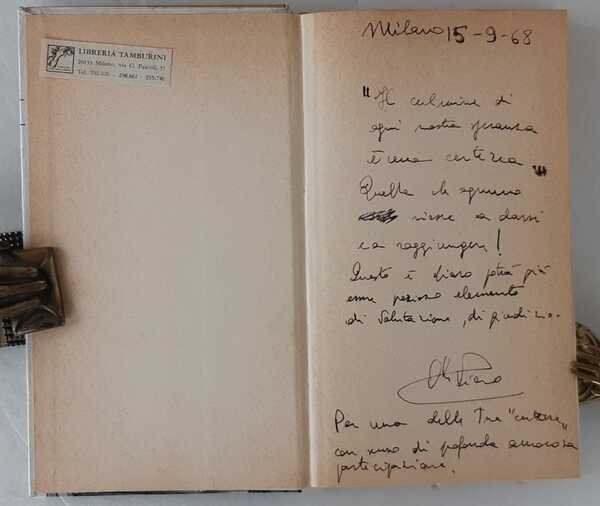 LIBRERIA TAMBURINI
20133 Milano, via G. Pascoli, 55
Milano 15-9-68
"Il culmine di
ogni nostra speranza
è una certezza"
Quella che ognuno
riesce a darsi
e a raggiungere!
Questo è
essere prezioso elemento
di valutazione, di giudizio.
Piero
Per una delle Tue "certezze"
con senso di profonda amorosa
partecipazione.